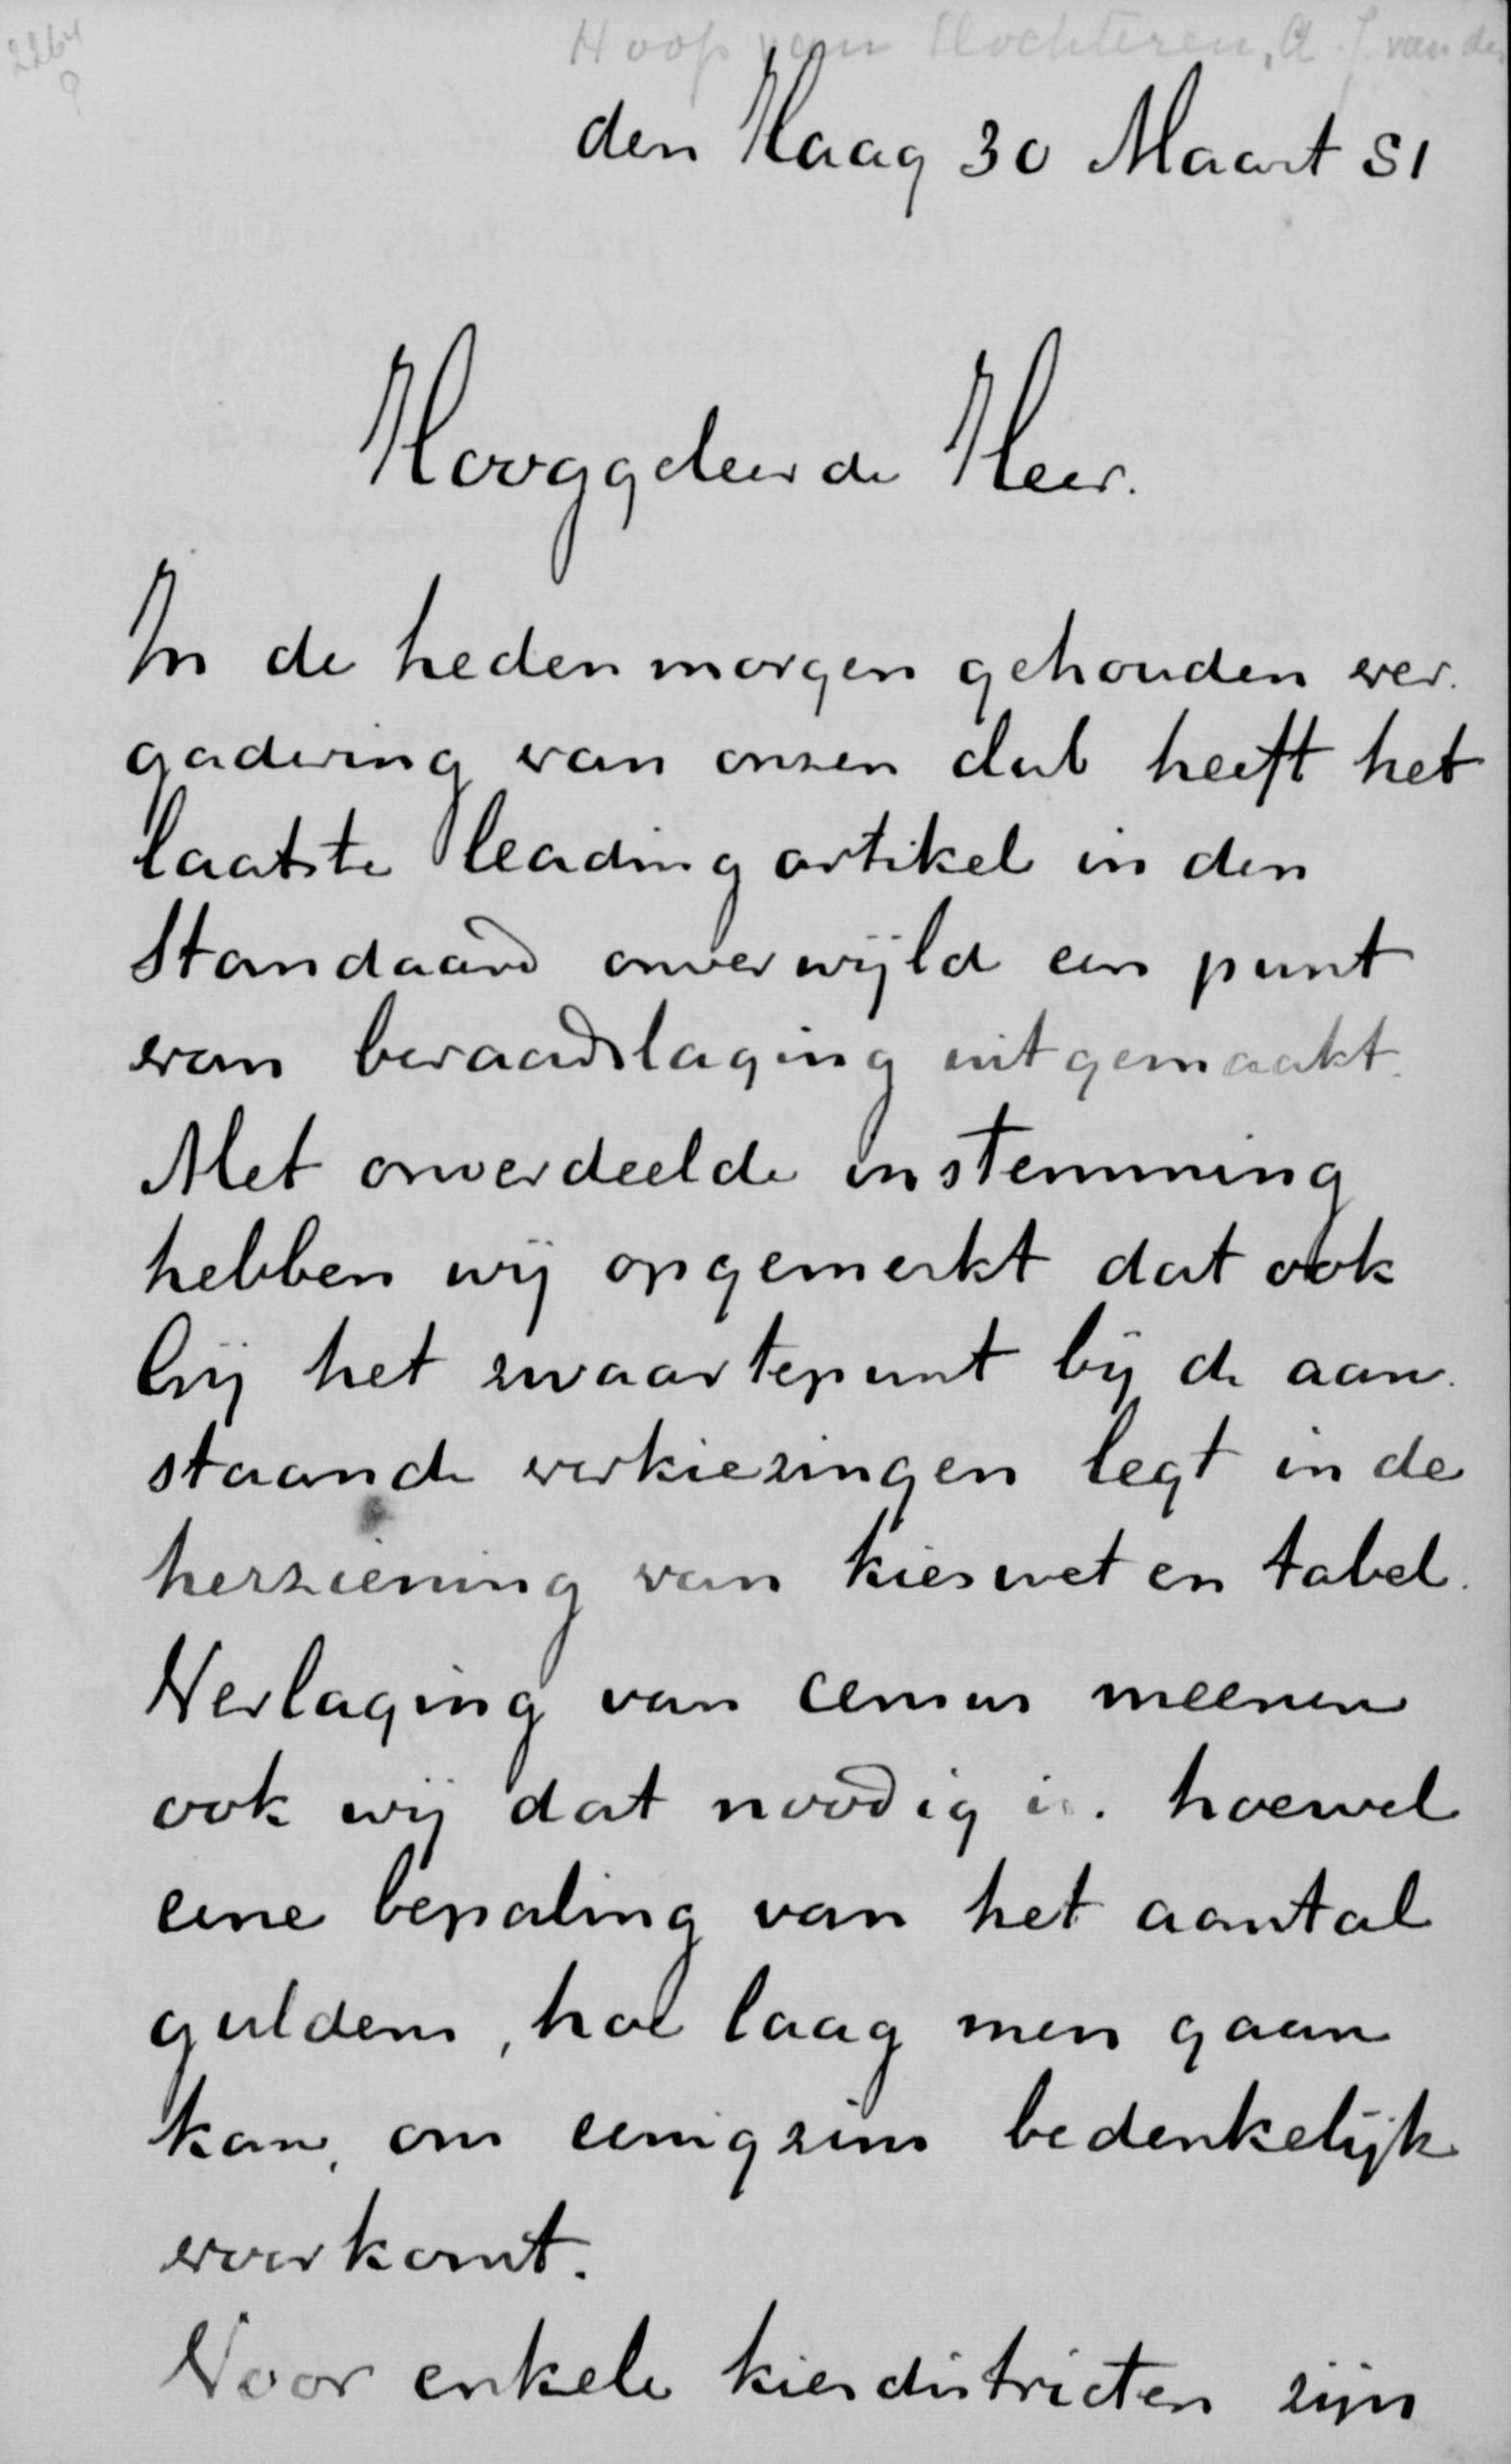 2264
9
Hoop van Slochteren, A. J. van der
den Haag 30 Maart 81
Hooggeleerde Heer.
In de hedenmorgen gehouden ver.
gadering van onzen club heeft het
laatste leading artikel in den
Standaard onverwijld een punt
van beraadslaging uitgemaakt.
Met onverdeelde instemming
hebben wij opgemerkt dat ook
Gij het zwaartepunt bij de aan.
staande verkiezingen legt in de
herziening van kieswet en tabel.
Verlaging van census meenen
ook wij dat noodig is. hoewel
eene bepaling van het aantal
guldens, hoe laag men gaan
kan, ons eenigzins bedenkelijk
voorkomt.
Voor enkele kiesdistricten zijn